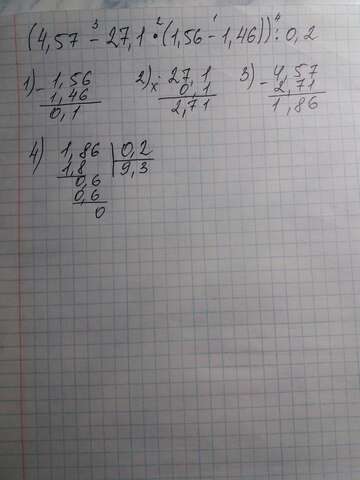 (4,57 -³ 27,1 •² (1,56 -¹ 1,46)) :⁴ 0,2
1) - 1,56   2) x 27,1   3) - 4,57
1,46   0,1   2,71
0,1   2,71   1,86
4) 1,86 | 0,2
1,8 | 9,3
0,6
0,6
0